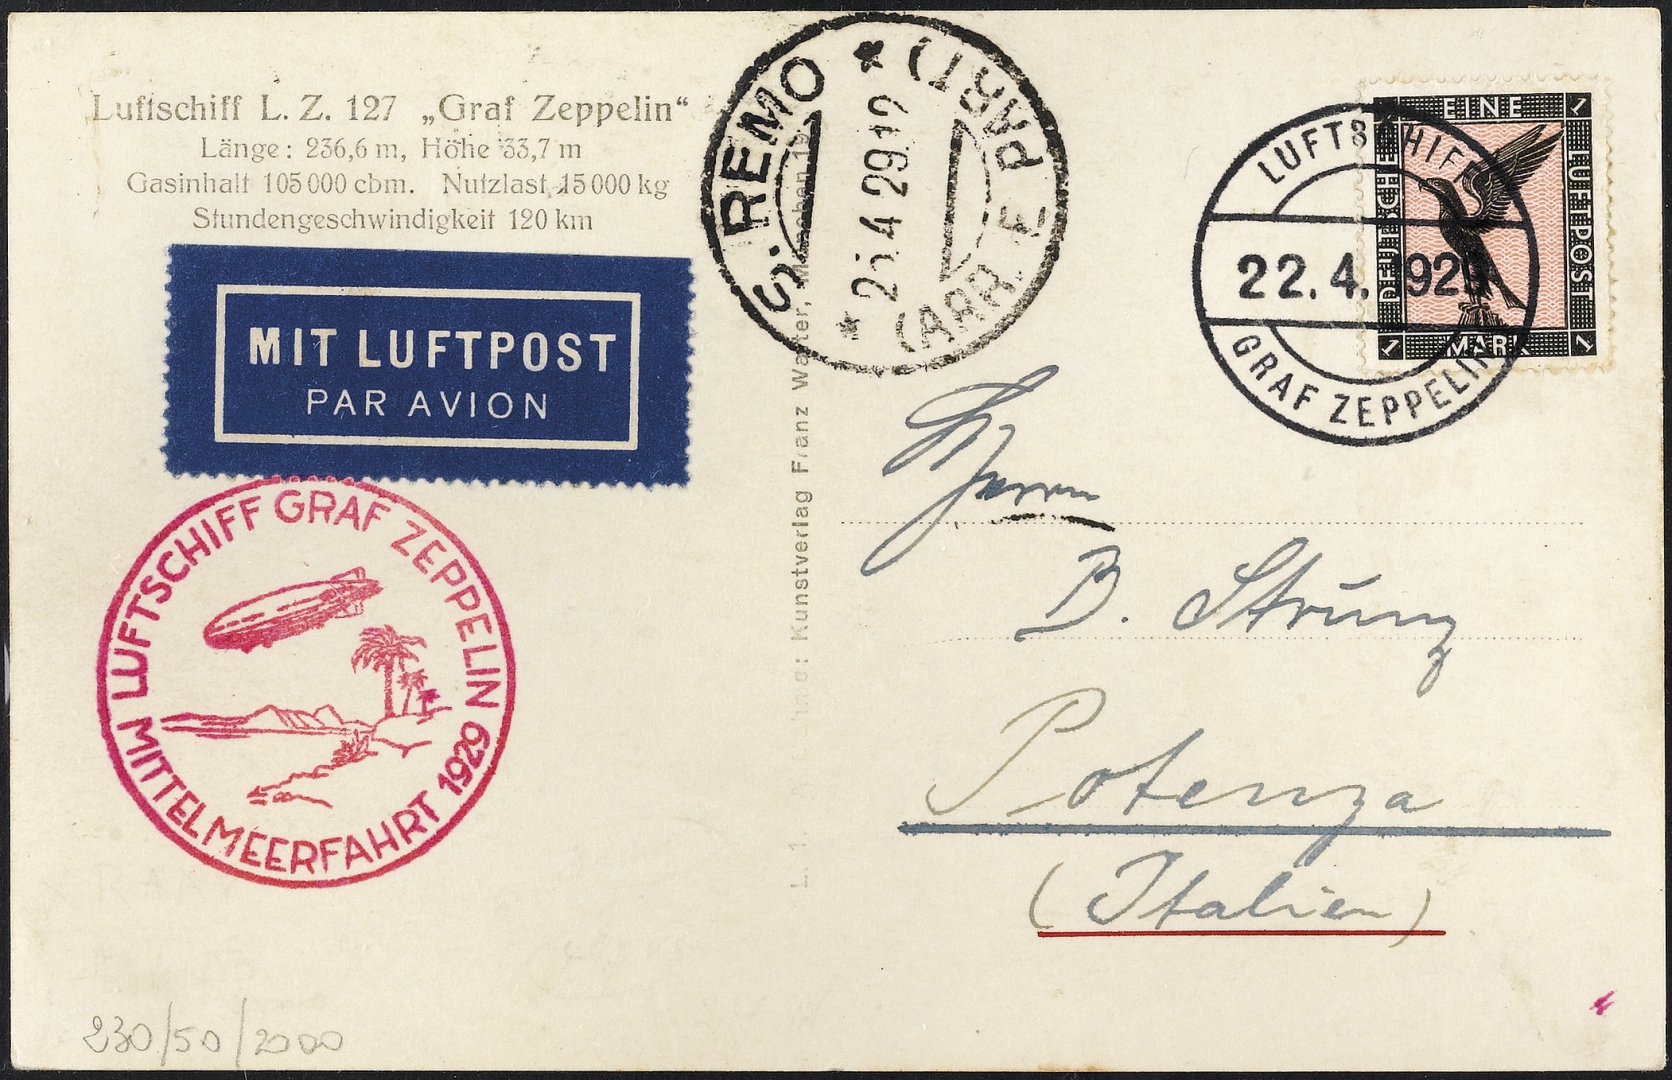 Luftschiff L. Z. 127 „Graf Zeppelin“
Länge: 236,6 m, Höhe 33,7 m
Gasinhalt 105000 cbm. Nutzlast 15000 kg
Stundengeschwindigkeit 120 km
MIT LUFTPOST
PAR AVION
LUFTSCHIFF GRAF ZEPPELIN
MITTELMEERFAHRT 1929
S. REMO * (ARR. E PART) *
25.4.29.12
Kunstverlag Franz Walter, München 19
LUFTSCHIFF
22.4.1929
GRAF ZEPPELIN
EINE
DEUTSCHE
LUFTPOST
MARK
1
1
1
Herrn
B. Strunz
Potenza
(Italien)
230/50/2000